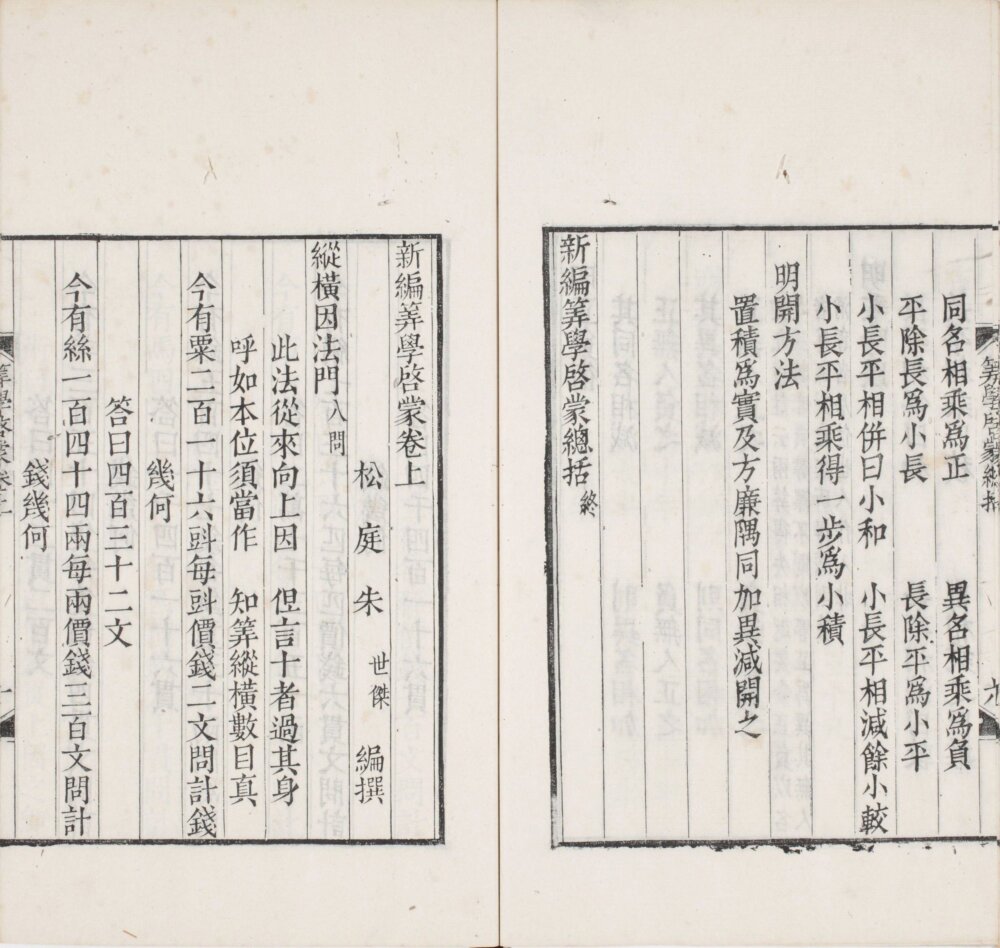 同名相乗爲正　異名相乗爲負
平除長爲小長　長除平爲小平
小長平相併曰小和　小長平相減餘小較
小長平相乗得一步爲小積
明開方法
置積爲實及方廉隅同加異減開之
新編筭學啓蒙總括終
新編筭學啓蒙卷上
松庭朱世傑編撰
縱橫因法門八問
此法從來向上因　但言十者過其身
呼如本位須當作　知筭縱橫數目真
今有粟二百一十六㪷每㪷價錢二文問計錢
幾何
答曰四百三十二文
今有絲一百四十四兩每兩價錢三百文問計
錢幾何